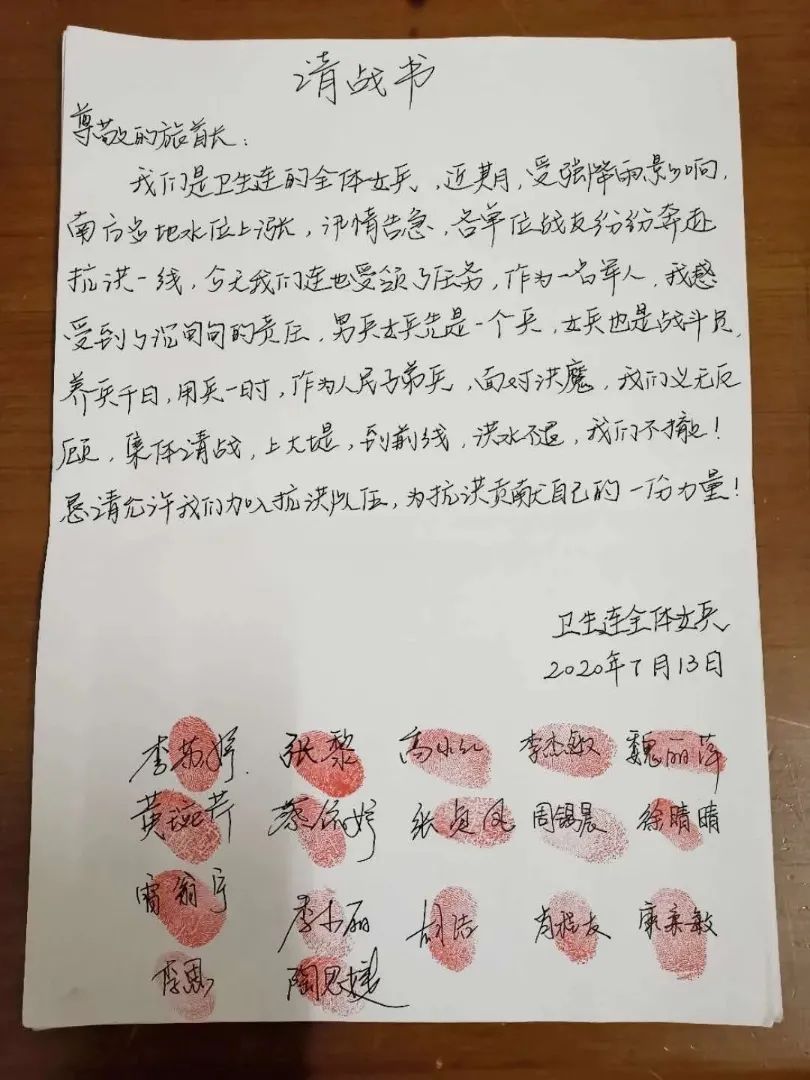 请战书
尊敬的旅首长：
我们是卫生连的全体女兵，近期，受强降雨影响，
南方多地水位上涨，汛情告急，各单位战友纷纷奔赴
抗洪一线，今天我们连也受领了任务，作为一名军人，我感
受到了沉甸甸的责任，男兵女兵先是一个兵，女兵也是战斗员，
养兵千日，用兵一时，作为人民子弟兵，面对洪魔，我们义无反
顾，集体请战，上大堤，到前线，洪水不退，我们不撤！
恳请允许我们加入抗洪队伍，为抗洪贡献自己的一份力量！
卫生连全体女兵
2020年7月13日
张黎 高小红 李杰敏 魏丽萍
张贞凤 周锡晨 徐晴晴
胡洁 康柔敏
李思 陶思媛